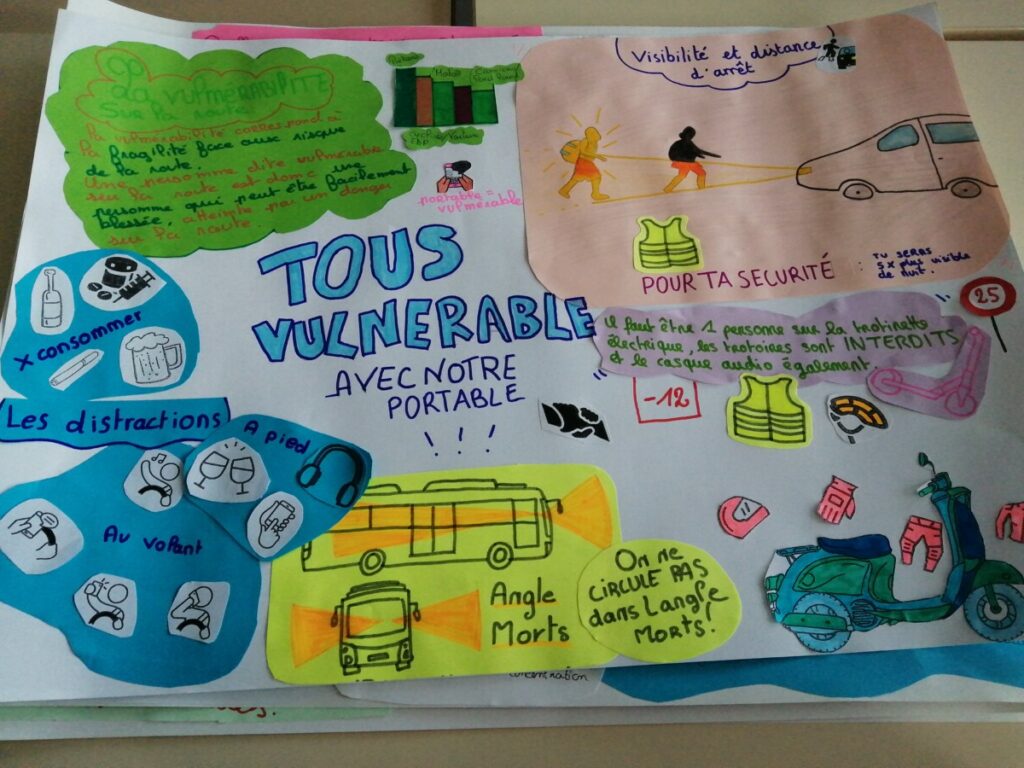 La VULNÉRABILITÉ
Sur la route
La vulnérabilité correspond à
la fragilité face aux risque
de la route.
Une personne dite vulnérable
sur la route est donc une
personne qui peut être facilement
blessée, atteinte par un danger
sur la route.
Motos
portable =
vulnérable
Visibilité et distance
d'arrêt
POUR TA SECURITÉ
: TU SERAS
5 x plus visible
de nuit.
TOUS
VULNERABLE
AVEC NOTRE
PORTABLE
! ! !
25
Il faut être 1 personne sur la trotinette
électrique, les trotoires sont INTERDITS
et le casque audio également.
-12
x consommer
Les distractions
A pied
Au volant
Angle
Morts
On ne
CIRCULE PAS
dans L'angle
MORTS!